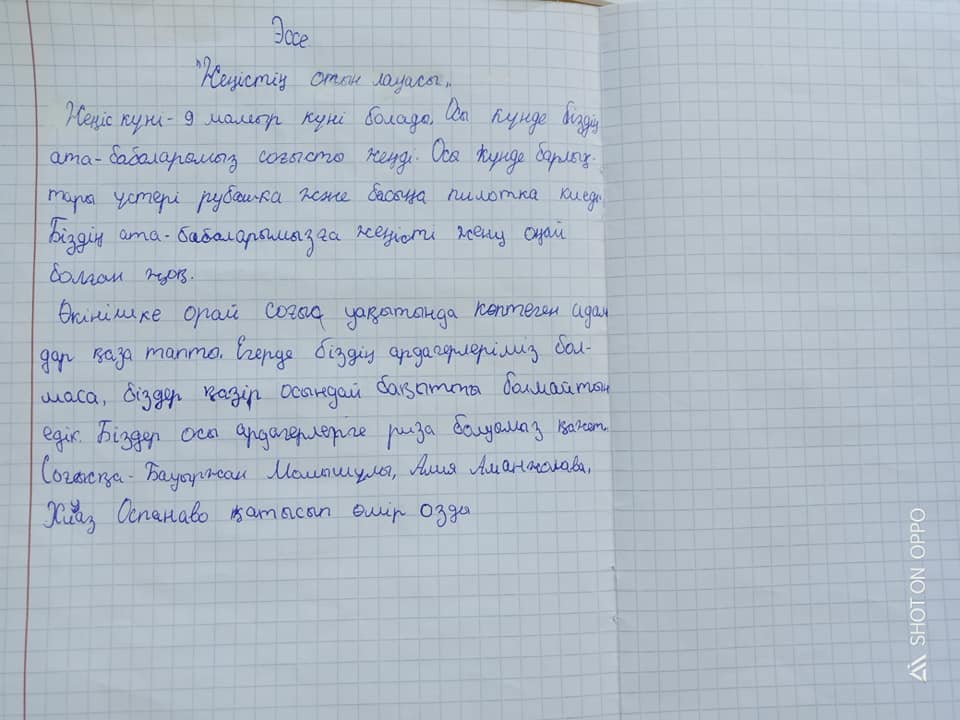 Эссе
"Жеңістің отын лауасы"
Жеңіс күні - 9 мамыр күні болады. Осы күнде біздің
ата-бабаларымыз соғысты жеңді. Осы күнде барлық-
тары үстері рубашка және басыңа пилотка киеді.
Біздің ата-бабаларымызға жеңісті жеңу оңай
болған жоқ.
Өкінішке орай соғыс уақытында көптеген адам
дар қаза тапты. Егерде біздің ардагерлеріміз бол-
маса, біздер қазір осындай бақытты болмайтын
едік. Біздер осы ардагерлерге риза болуымыз қажет.
Соғысқа - Бауыржан Момышұлы, Алия Аманжолава,
Хиуаз Оспанаво қатысып өмір озды
SHOT ON OPPO